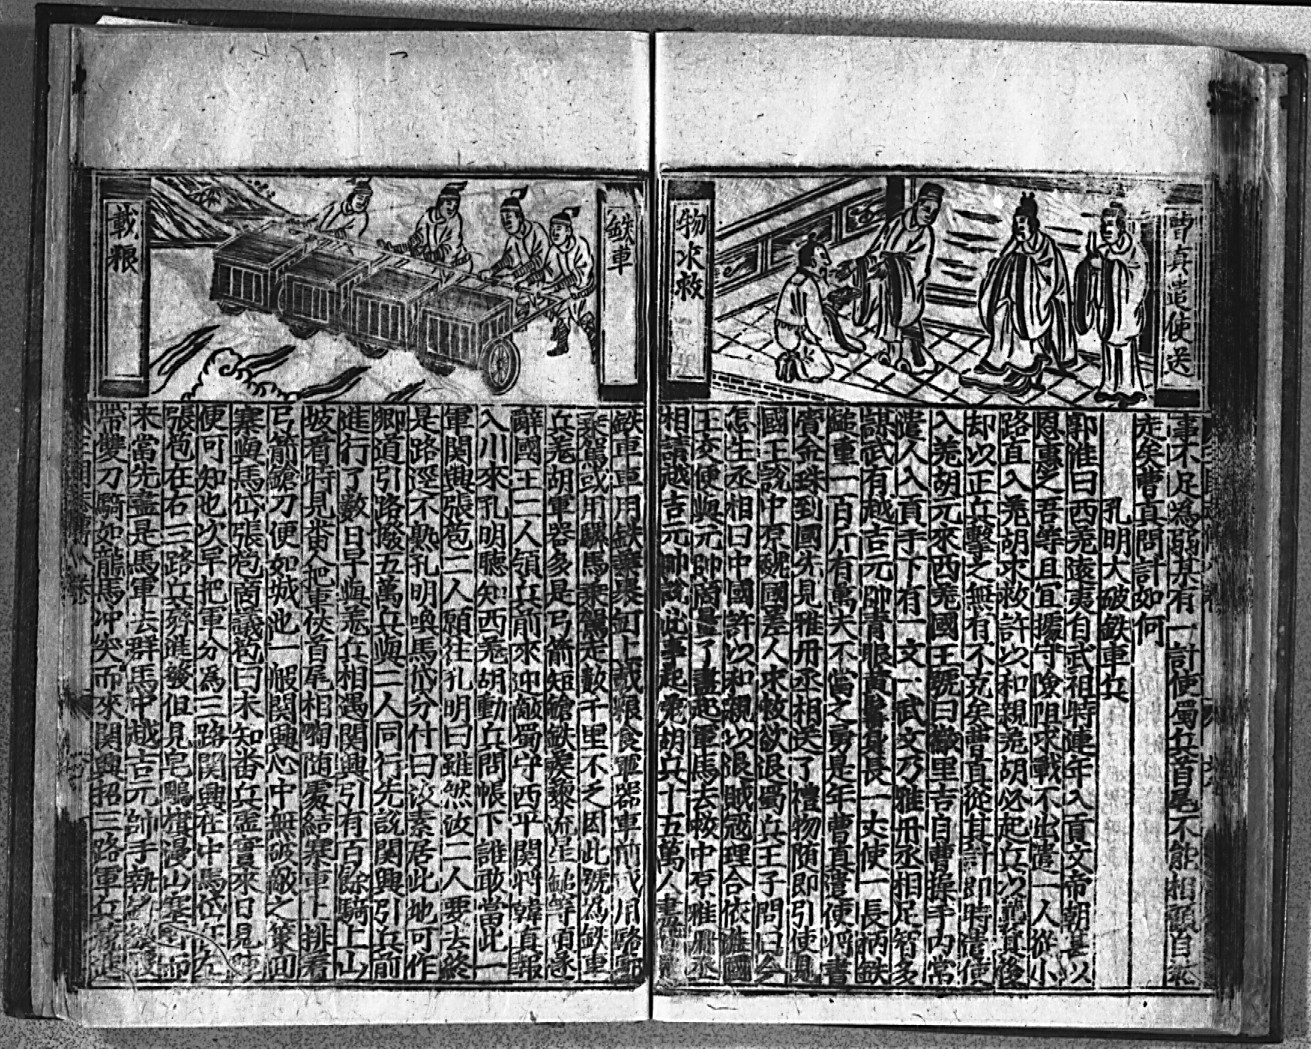 曹真遣使送
物求救
事不足為弱某有一計使蜀兵首尾不能相顧自然
走矣曹真問計如何
孔明大破鉄車兵
郭淮曰西羌遠夷自武祖時連年入貢文帝朝甚以
恩惠之吾等且宜據守險阻求戰不出遣一人從小
路直入羌胡求救許以和親羌胡必起兵以襲其後
却以正兵擊之無有不克矣曹真從其計即時遣使
入羌胡元來西羌國王號曰徹里吉自曹操手内常
遣人入貢手下有一文一武文乃雅丹丞相足智多
謀武有越吉元帥青眼黃鬚身長一丈使一長柄鉄
鎚重一百斤有萬夫不當之勇是年曹真遣使將書
賫金珠到國先見雅丹丞相送了禮物随即引使見
國王說中原魏國差人求救欲退蜀兵王子問曰今
怎生丞相曰中國許以和親以退賊冦理合依准國
王交便與元帥商量了盡起軍馬去救中原雅丹丞
相請越吉元帥說此事起羌胡兵十五萬人
鉄車
載粮
鉄車車用鉄葉裹釘上載粮食軍器車前或用駱駝
來駕或用騾馬來駕走數千里不乏因此號為鉄車
兵羌胡軍器多是弓箭短鎗鉄蒺藜流星鎚等項遂
辭國王二人領兵前來冲敵蜀守西平関將韓貞報
入川來孔明聽知西羌胡動兵問帳下誰敢當此一
軍関興張苞二人願往孔明曰雖然汝二人要去終
是路逕不熟孔明喚馬岱分付曰汝素居此地可作
鄉道引路撥五萬兵與二人同行先説関興引兵前
進行了數日早與羌兵相遇関興引有百餘騎上山
坡看時見番人把車伏首尾相啣随處結寨車上排着
弓箭鎗刀便如城池一般関興心中無破敵之策回
寨與馬岱張苞商議苞曰未知番兵虛實來日見陣
便可知也次早把軍分為三路関興在中馬岱在左
張苞在右三路兵齊進發但見皂鵰旗漫山塞野而
来當先盡是馬軍去群馬中越吉元帥手執鉄
帶雙刀騎如龍馬冲突而來関興招三路軍兵